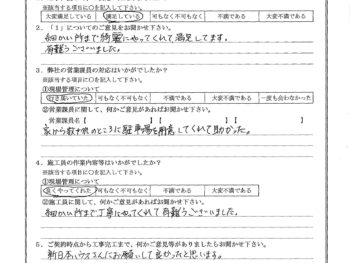 ※該当する項目に○を記入して下さい。
大変満足している 満足している 可も無く不可もなく 不満である 大変不満である
2．「1」についてのご意見をお聞かせ下さい。
細かい所まで綺麗にやってくれて満足してます。
有難うございました。
3．弊社の営業課員の対応はいかがでしたか？
※該当する項目に○を記入して下さい。
①現場管理について
行き届いていた 可もなく不可もなく 不満である 大変不満である 一度も会わなかった
②営業課員について、何かご意見があればお聞かせ下さい。
営業課員名【 】【 】【 】
家から数十米のところに駐車場を用意してくれて助かった。
4．施工員の作業内容等はいかがでしたか？
※該当する項目に○を記入して下さい。
①現場管理について
良くやってくれた 可もなく不可もなく 不満である 大変不満である
②施工員に関して、何かご意見があればお聞かせ下さい。
細かい所まで丁寧にやってくれて有難うございました。
5．ご契約時点から工事完工まで、何かご意見等がありましたらお聞かせ下さい。
新日本ハウスさんにお願いして良かったと思います。